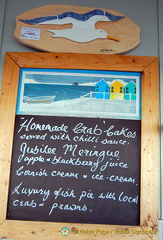 "Homemade Crab" Cakes
served with chilli sauce.
Jubilee Meringue
apple & blackberry juice
Cornish cream & ice-cream
Luxury fish pie with local
crab & prawns.